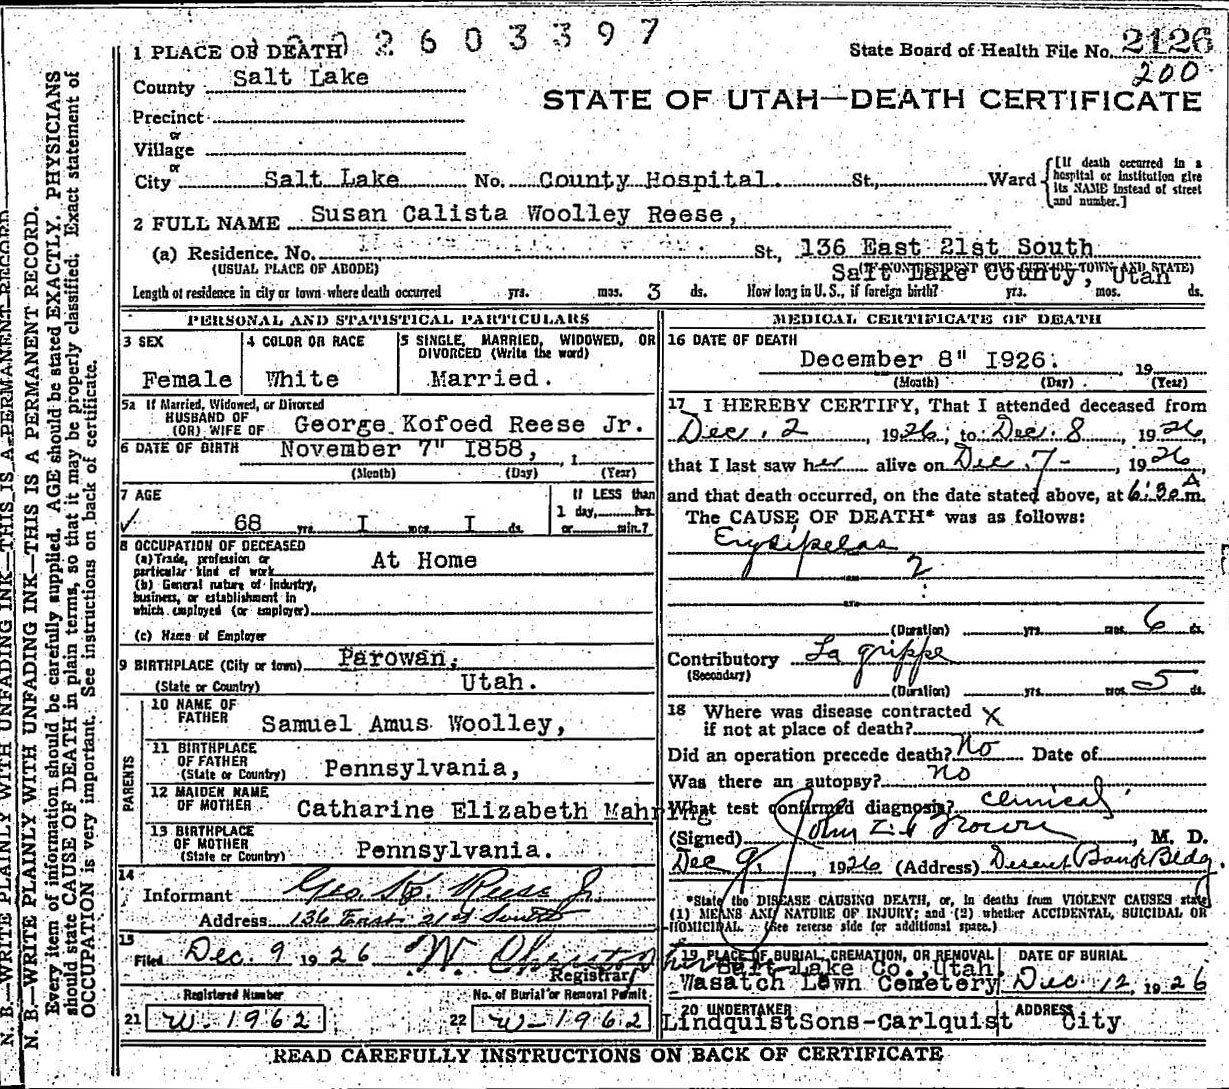 2603397
1 PLACE OF DEATH
State Board of Health File No. 2126
200
County Salt Lake
STATE OF UTAH—DEATH CERTIFICATE
Precinct
or
Village
or
City Salt Lake No. County Hospital. St., Ward
[If death occurred in a hospital or institution give its NAME instead of street and number.]
2 FULL NAME Susan Calista Woolley Reese,
(a) Residence. No. St., 136 East 21st South
(USUAL PLACE OF ABODE) Salt Lake County, Utah
(IF NONRESIDENT GIVE CITY OR TOWN AND STATE)
Length of residence in city or town where death occurred yrs. mos. 3 ds. How long in U. S., if foreign birth? yrs. mos. ds.
PERSONAL AND STATISTICAL PARTICULARS
3 SEX
Female
4 COLOR OR RACE
White
5 SINGLE, MARRIED, WIDOWED, OR DIVORCED (Write the word)
Married.
5a If Married, Widowed, or Divorced
HUSBAND OF
(OR) WIFE OF George Kofoed Reese Jr.
6 DATE OF BIRTH November 7" I858, , 1
(Month) (Day) (Year)
7 AGE
68 yrs. I mos. I ds.
If LESS than
1 day, hrs.
or min.?
8 OCCUPATION OF DECEASED
(a) Trade, profession or
particular kind of work At Home
(b) General nature of industry,
business, or establishment in
which employed (or employer)
(c) Name of Employer
9 BIRTHPLACE (City or town) Parowan,
(State or Country) Utah.
PARENTS
10 NAME OF
FATHER Samuel Amus Woolley,
11 BIRTHPLACE
OF FATHER
(State or Country) Pennsylvania,
12 MAIDEN NAME
OF MOTHER Catharine Elizabeth Mahring
13 BIRTHPLACE
OF MOTHER
(State or Country) Pennsylvania.
14
Informant Geo. K. Reese Jr.
Address 136 East 21st South
15
Filed Dec. 9 1926
Registrar
Registered Number
21 W-1962
No. of Burial or Removal Permit
22 W-1962
MEDICAL CERTIFICATE OF DEATH
16 DATE OF DEATH
December 8" I926. , 19
(Month) (Day) (Year)
17 I HEREBY CERTIFY, That I attended deceased from
Dec. 2, 1926, to Dec. 8, 1926,
that I last saw her alive on Dec. 7-, 1926,
and that death occurred, on the date stated above, at 6:30 A m.
The CAUSE OF DEATH* was as follows:
Erysipelas
2
(Duration) yrs. mos. 6 ds.
Contributory La grippe
(Secondary)
(Duration) yrs. mos. 5 ds.
18 Where was disease contracted X
if not at place of death?
Did an operation precede death? No Date of
Was there an autopsy? no
What test confirmed diagnosis? clinical
(Signed) John Z. Brown, M. D.
Dec 9, 1926 (Address) Deseret Bank Bldg.
*State the DISEASE CAUSING DEATH, or, in deaths from VIOLENT CAUSES state
(1) MEANS AND NATURE OF INJURY; and (2) whether ACCIDENTAL, SUICIDAL OR
HOMICIDAL. (See reverse side for additional space.)
19 PLACE OF BURIAL, CREMATION, OR REMOVAL
Salt Lake Co., Utah.
Wasatch Lawn Cemetery
DATE OF BURIAL
Dec. 12, 1926
20 UNDERTAKER
LindquistSons-Carlquist
ADDRESS
City
READ CAREFULLY INSTRUCTIONS ON BACK OF CERTIFICATE
N. B.—WRITE PLAINLY WITH UNFADING INK—THIS IS A PERMANENT RECORD
N. B.—WRITE PLAINLY WITH UNFADING INK—THIS IS A PERMANENT RECORD.
Every item of information should be carefully supplied. AGE should be stated EXACTLY. PHYSICIANS
should state CAUSE OF DEATH in plain terms, so that it may be properly classified. Exact statement of
OCCUPATION is very important. See instructions on back of certificate.